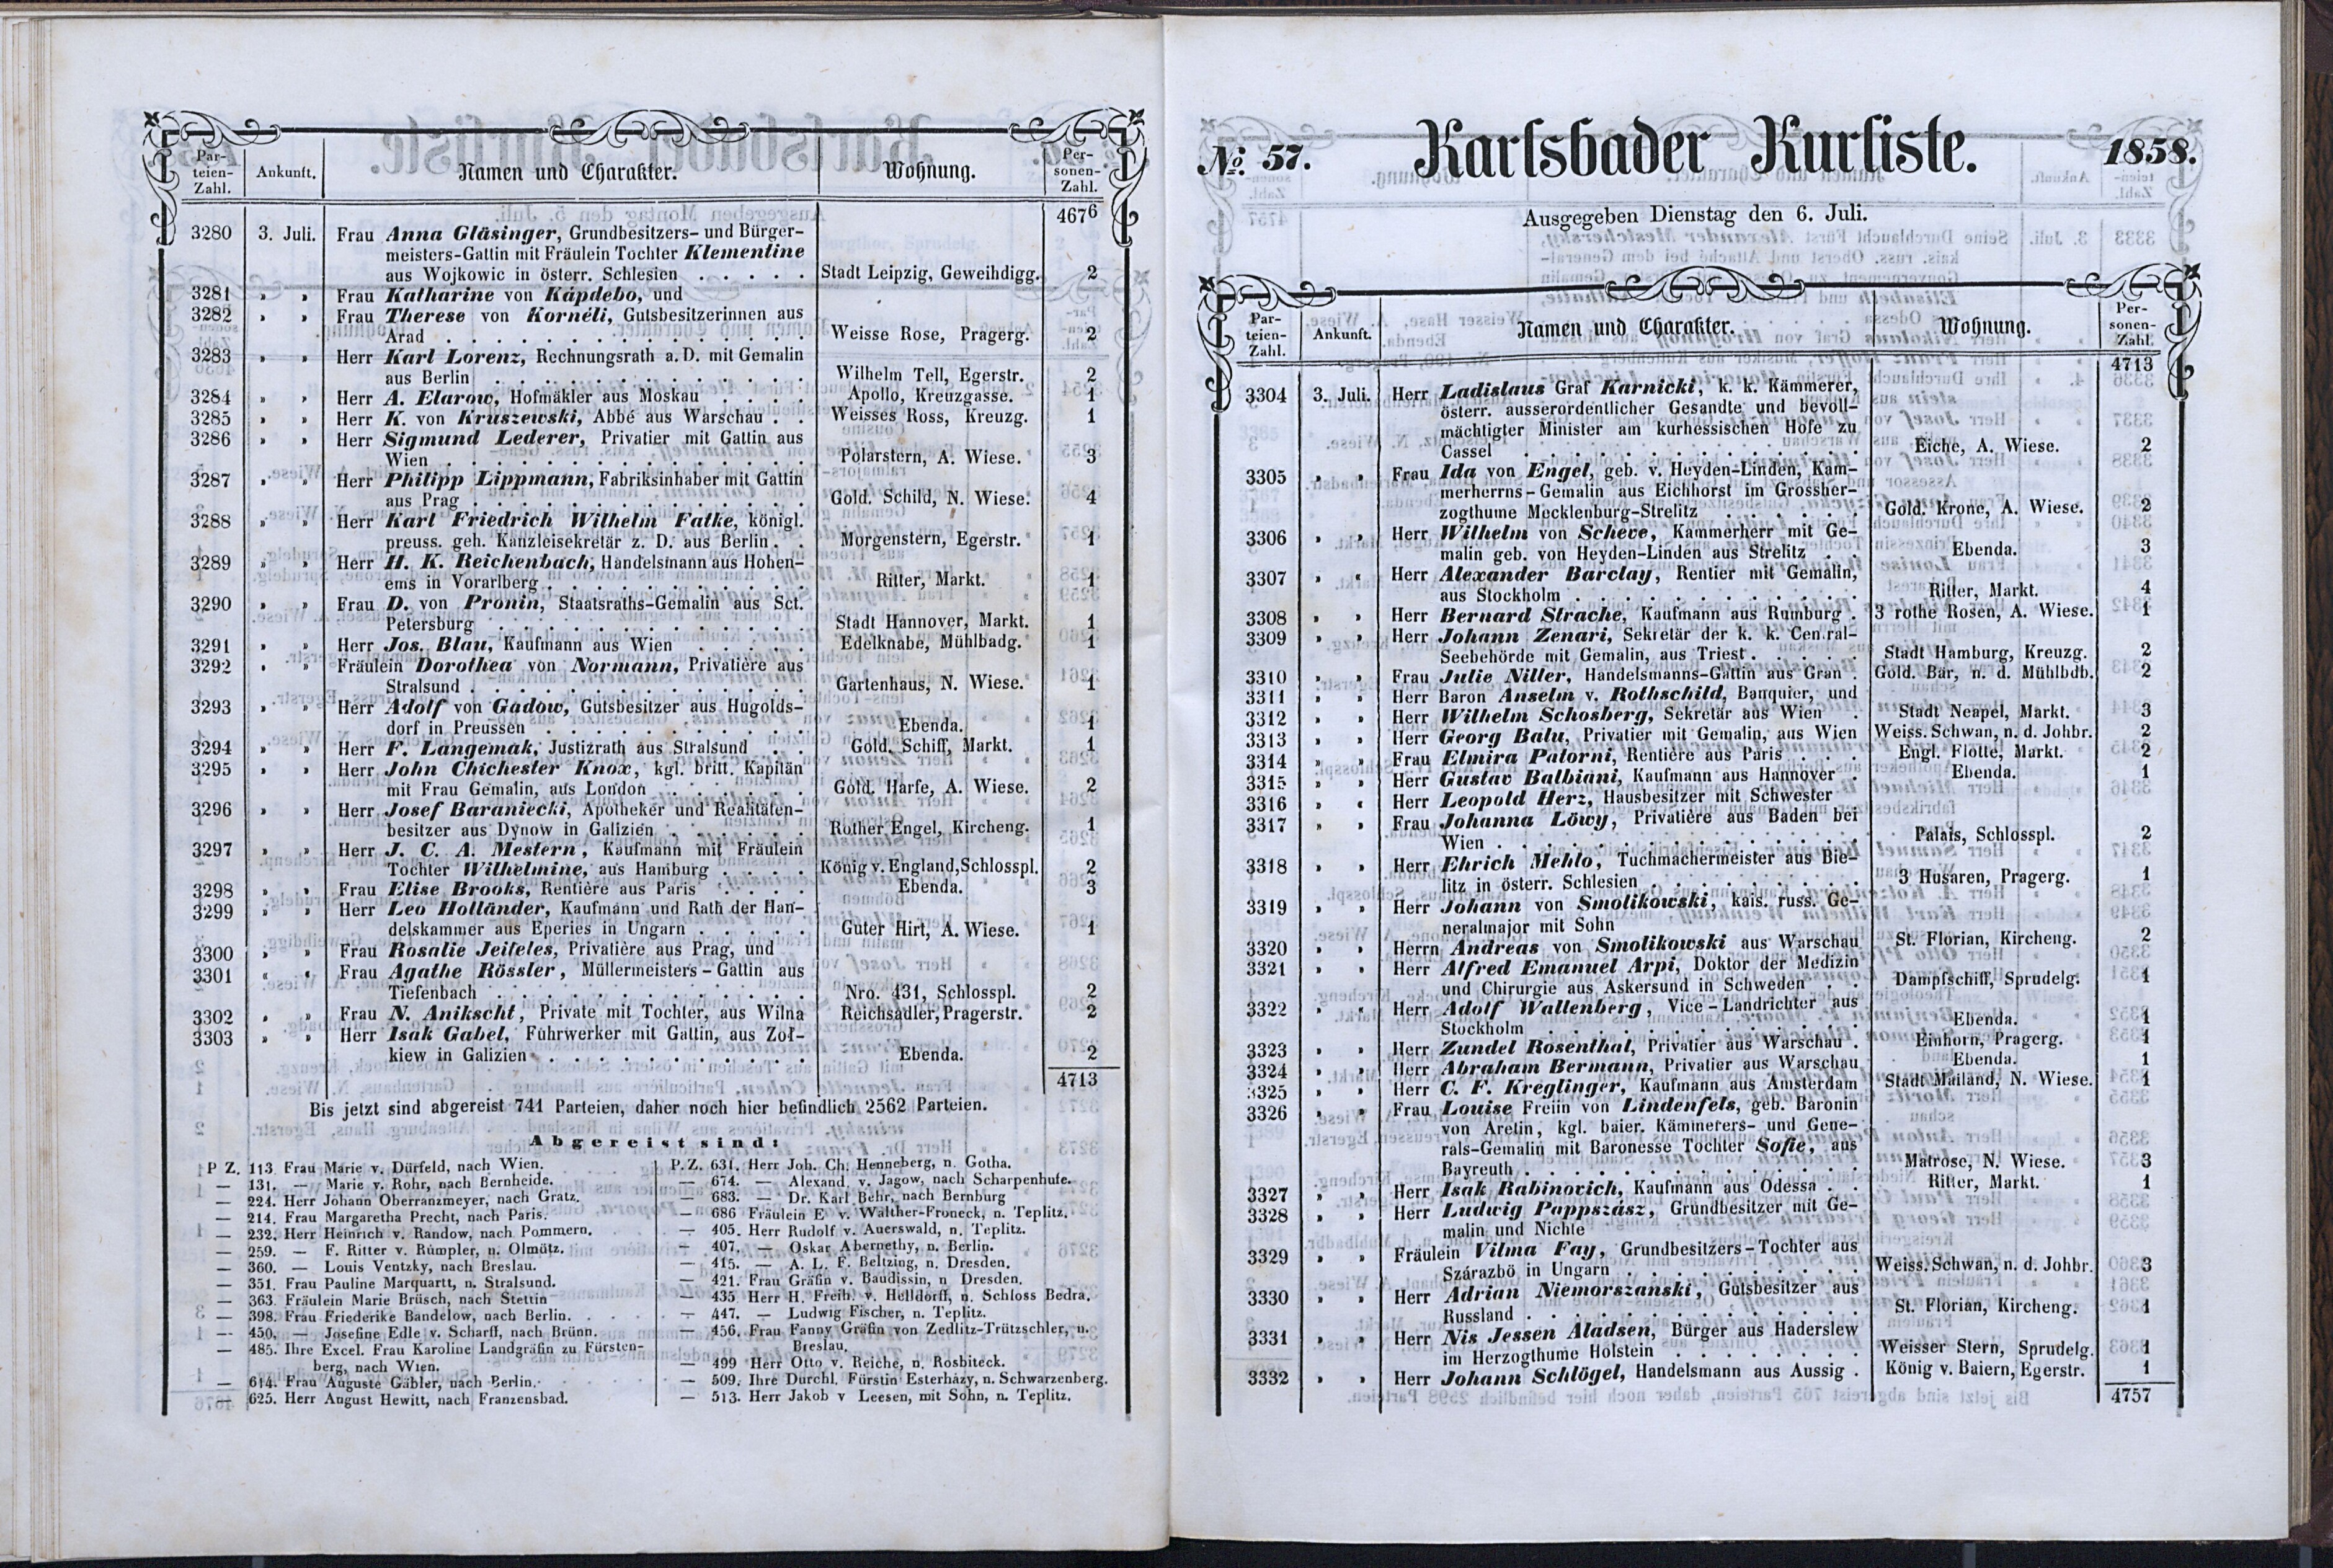 Par-
teien-
Zahl.
Ankunft.
Namen und Charakter.
Wohnung.
Per-
sonen-
Zahl.
4676
3280 3. Juli. Frau Anna Gläsinger, Grundbesitzers- und Bürger-
meisters-Gattin mit Fräulein Tochter Klementine
aus Wojkowic in österr. Schlesien . . . . . Stadt Leipzig, Geweihdigg. 2
3281 » » Frau Katharine von Kápdebo, und
3282 » » Frau Therese von Kornéli, Gutsbesitzerinnen aus
Arad . . . . . . . . . . . . . Weisse Rose, Pragerg. 2
3283 » » Herr Karl Lorenz, Rechnungsrath a. D. mit Gemalin
aus Berlin . . . . . . . . . . . . Wilhelm Tell, Egerstr. 2
3284 » » Herr A. Elarow, Hofmäkler aus Moskau . . . . Apollo, Kreuzgasse. 1
3285 » » Herr K. von Kruszewski, Abbé aus Warschau . . Weisses Ross, Kreuzg. 1
3286 » » Herr Sigmund Lederer, Privatier mit Gattin aus
Wien . . . . . . . . . . . . . Polarstern, A. Wiese. 3
3287 » » Herr Philipp Lippmann, Fabriksinhaber mit Gattin
aus Prag . . . . . . . . . . . . Gold. Schild, N. Wiese. 4
3288 » » Herr Karl Friedrich Wilhelm Fatke, königl.
preuss. geh. Kanzleisekretär z. D. aus Berlin . . Morgenstern, Egerstr. 1
3289 » » Herr H. K. Reichenbach, Handelsmann aus Hohen-
ems in Vorarlberg . . . . . . . . . . Ritter, Markt. 1
3290 » » Frau D. von Pronin, Staatsraths-Gemalin aus Sct.
Petersburg . . . . . . . . . . . . Stadt Hannover, Markt. 1
3291 » » Herr Jos. Blau, Kaufmann aus Wien . . . . . Edelknabe, Mühlbadg. 1
3292 » » Fräulein Dorothea von Normann, Privatière aus
Stralsund . . . . . . . . . . . . Gartenhaus, N. Wiese. 1
3293 » » Herr Adolf von Gadow, Gutsbesitzer aus Hugolds-
dorf in Preussen . . . . . . . . . . Ebenda. 1
3294 » » Herr F. Langemak, Justizrath aus Stralsund . . Gold. Schiff, Markt. 1
3295 » » Herr John Chichester Knox, kgl. britt. Kapitän
mit Frau Gemalin, aus London . . . . . . Gold. Harfe, A. Wiese. 2
3296 » » Herr Josef Baraniecki, Apotheker und Realitäten-
besitzer aus Dynow in Galizien . . . . . . Rother Engel, Kircheng. 1
3297 » » Herr J. C. A. Mestern, Kaufmann mit Fräulein
Tochter Wilhelmine, aus Hamburg . . . . König v. England, Schlosspl. 2
3298 » » Frau Elise Brooks, Rentière aus Paris . . . . Ebenda. 3
3299 » » Herr Leo Holländer, Kaufmann und Rath der Han-
delskammer aus Eperies in Ungarn . . . . . Guter Hirt, A. Wiese. 1
3300 » » Frau Rosalie Jeiteles, Privatière aus Prag, und
3301 » » Frau Agathe Rössler, Müllermeisters-Gattin aus
Tiefenbach . . . . . . . . . . . . Nro. 431, Schlosspl. 2
3302 » » Frau N. Anikscht, Private mit Tochter, aus Wilna Reichsadler, Pragerstr. 2
3303 » » Herr Isak Gabel, Fuhrwerker mit Gattin, aus Zoł-
kiew in Galizien . . . . . . . . . . Ebenda. 2
4713
Bis jetzt sind abgereist 741 Parteien, daher noch hier befindlich 2562 Parteien.
Abgereist sind:
P Z. 113. Frau Marie v. Dürfeld, nach Wien.
— 131. — Marie v. Rohr, nach Bernheide.
— 224. Herr Johann Oberranzmeyer, nach Gratz.
— 214. Frau Margaretha Precht, nach Paris.
— 232. Herr Heinrich v. Randow, nach Pommern.
— 259. — F. Ritter v. Rümpler, n. Olmütz.
— 360. — Louis Ventzky, nach Breslau.
— 351. Frau Pauline Marquartt, n. Stralsund.
— 363. Fräulein Marie Brüsch, nach Stettin
— 398. Frau Friederike Bandelow, nach Berlin.
— 450. — Josefine Edle v. Scharff, nach Brünn.
— 485. Ihre Excel. Frau Karoline Landgräfin zu Fürsten-
berg, nach Wien.
— 614. Frau Auguste Gäbler, nach Berlin.
— 625. Herr August Hewitt, nach Franzensbad.
P. Z. 631. Herr Joh. Ch. Henneberg, n. Gotha.
— 674. — Alexand. v. Jagow, nach Scharpenhufe.
— 683. — Dr. Karl Behr, nach Bernburg
— 686 Fräulein E v. Walther-Froneck, n. Teplitz.
— 405. Herr Rudolf v. Auerswald, n. Teplitz.
— 407. — Oskar Abernethy, n. Berlin.
— 415. — A. L. F. Beltzing, n. Dresden.
— 421. Frau Gräfin v. Baudissin, n Dresden.
— 435 Herr H. Freih. v. Helldorff, n. Schloss Bedra.
— 447. — Ludwig Fischer, n. Teplitz.
— 456. Frau Fanny Gräfin von Zedlitz-Trützschler, n.
Breslau.
— 499 Herr Otto v. Reiche, n. Rosbiteck.
— 509. Ihre Durchl. Fürstin Esterházy, n. Schwarzenberg.
— 513. Herr Jakob v Leesen, mit Sohn, n. Teplitz.
No. 57. Karlsbader Kurliste. 1858.
Ausgegeben Dienstag den 6. Juli.
Par-
teien-
Zahl.
Ankunft.
Namen und Charakter.
Wohnung.
Per-
sonen-
Zahl.
4713
3304 3. Juli. Herr Ladislaus Graf Karnicki, k. k. Kämmerer,
österr. ausserordentlicher Gesandte und bevoll-
mächtigter Minister am kurhessischen Hofe zu
Cassel . . . . . . . . . . . . . Eiche, A. Wiese. 2
3305 » » Frau Ida von Engel, geb. v. Heyden-Linden, Kam-
merherrns-Gemalin aus Eichhorst im Grossher-
zogthume Mecklenburg-Strelitz . . . . . . Gold. Krone, A. Wiese. 2
3306 » » Herr Wilhelm von Scheve, Kammerherr mit Ge-
malin geb. von Heyden-Linden aus Strelitz . . Ebenda. 3
3307 » » Herr Alexander Barclay, Rentier mit Gemalin,
aus Stockholm . . . . . . . . . . . Ritter, Markt. 4
3308 » » Herr Bernard Strache, Kaufmann aus Rumburg . 3 rothe Rosen, A. Wiese. 1
3309 » » Herr Johann Zenari, Sekretär der k. k. Central-
Seebehörde mit Gemalin, aus Triest . . . . . Stadt Hamburg, Kreuzg. 2
3310 » » Frau Julie Niller, Handelsmanns-Gattin aus Gran . Gold. Bär, n. d. Mühlbdb. 2
3311 » » Herr Baron Anselm v. Rothschild, Banquier, und
3312 » » Herr Wilhelm Schosberg, Sekretär aus Wien . Stadt Neapel, Markt. 3
3313 » » Herr Georg Balu, Privatier mit Gemalin, aus Wien Weiss. Schwan, n. d. Johbr. 2
3314 » » Frau Elmira Patorni, Rentière aus Paris . . . Engl. Flotte, Markt. 2
3315 » » Herr Gustav Balbiani, Kaufmann aus Hannover . Ebenda. 1
3316 » » Herr Leopold Herz, Hausbesitzer mit Schwester
3317 » » Frau Johanna Löwy, Privatière aus Baden bei
Wien . . . . . . . . . . . . . Palais, Schlosspl. 2
3318 » » Herr Ehrich Mehlo, Tuchmachermeister aus Bie-
litz in österr. Schlesien . . . . . . . . 3 Husaren, Pragerg. 1
3319 » » Herr Johann von Smolikowski, kais. russ. Ge-
neralmajor mit Sohn
3320 » » Herrn Andreas von Smolikowski aus Warschau St. Florian, Kircheng. 2
3321 » » Herr Alfred Emanuel Arpi, Doktor der Medizin
und Chirurgie aus Askersund in Schweden . . Dampfschiff, Sprudelg. 1
3322 » » Herr Adolf Wallenberg, Vice-Landrichter aus
Stockholm . . . . . . . . . . . . Ebenda. 1
3323 » » Herr Zundel Rosenthal, Privatier aus Warschau . Einhorn, Pragerg. 1
3324 » » Herr Abraham Bermann, Privatier aus Warschau Ebenda. 1
3325 » » Herr C. F. Kreglinger, Kaufmann aus Amsterdam Stadt Mailand, N. Wiese. 1
3326 » » Frau Louise Freiin von Lindenfels, geb. Baronin
von Aretin, kgl. baier. Kämmerers- und Gene-
rals-Gemalin mit Baronesse Tochter Sofie, aus
Bayreuth . . . . . . . . . . . . Matrose, N. Wiese. 3
3327 » » Herr Isak Rabinovich, Kaufmann aus Odessa . . Ritter, Markt. 1
3328 » » Herr Ludwig Pappszász, Grundbesitzer mit Ge-
malin und Nichte
3329 » » Fräulein Vilma Fay, Grundbesitzers-Tochter aus
Szárazbö in Ungarn . . . . . . . . . Weiss. Schwan, n. d. Johbr. 3
3330 » » Herr Adrian Niemorszanski, Gutsbesitzer aus
Russland . . . . . . . . . . . . St. Florian, Kircheng. 1
3331 » » Herr Nis Jessen Aladsen, Bürger aus Haderslew
im Herzogthume Holstein . . . . . . . Weisser Stern, Sprudelg. 1
3332 » » Herr Johann Schlögel, Handelsmann aus Aussig . König v. Baiern, Egerstr. 1
4757